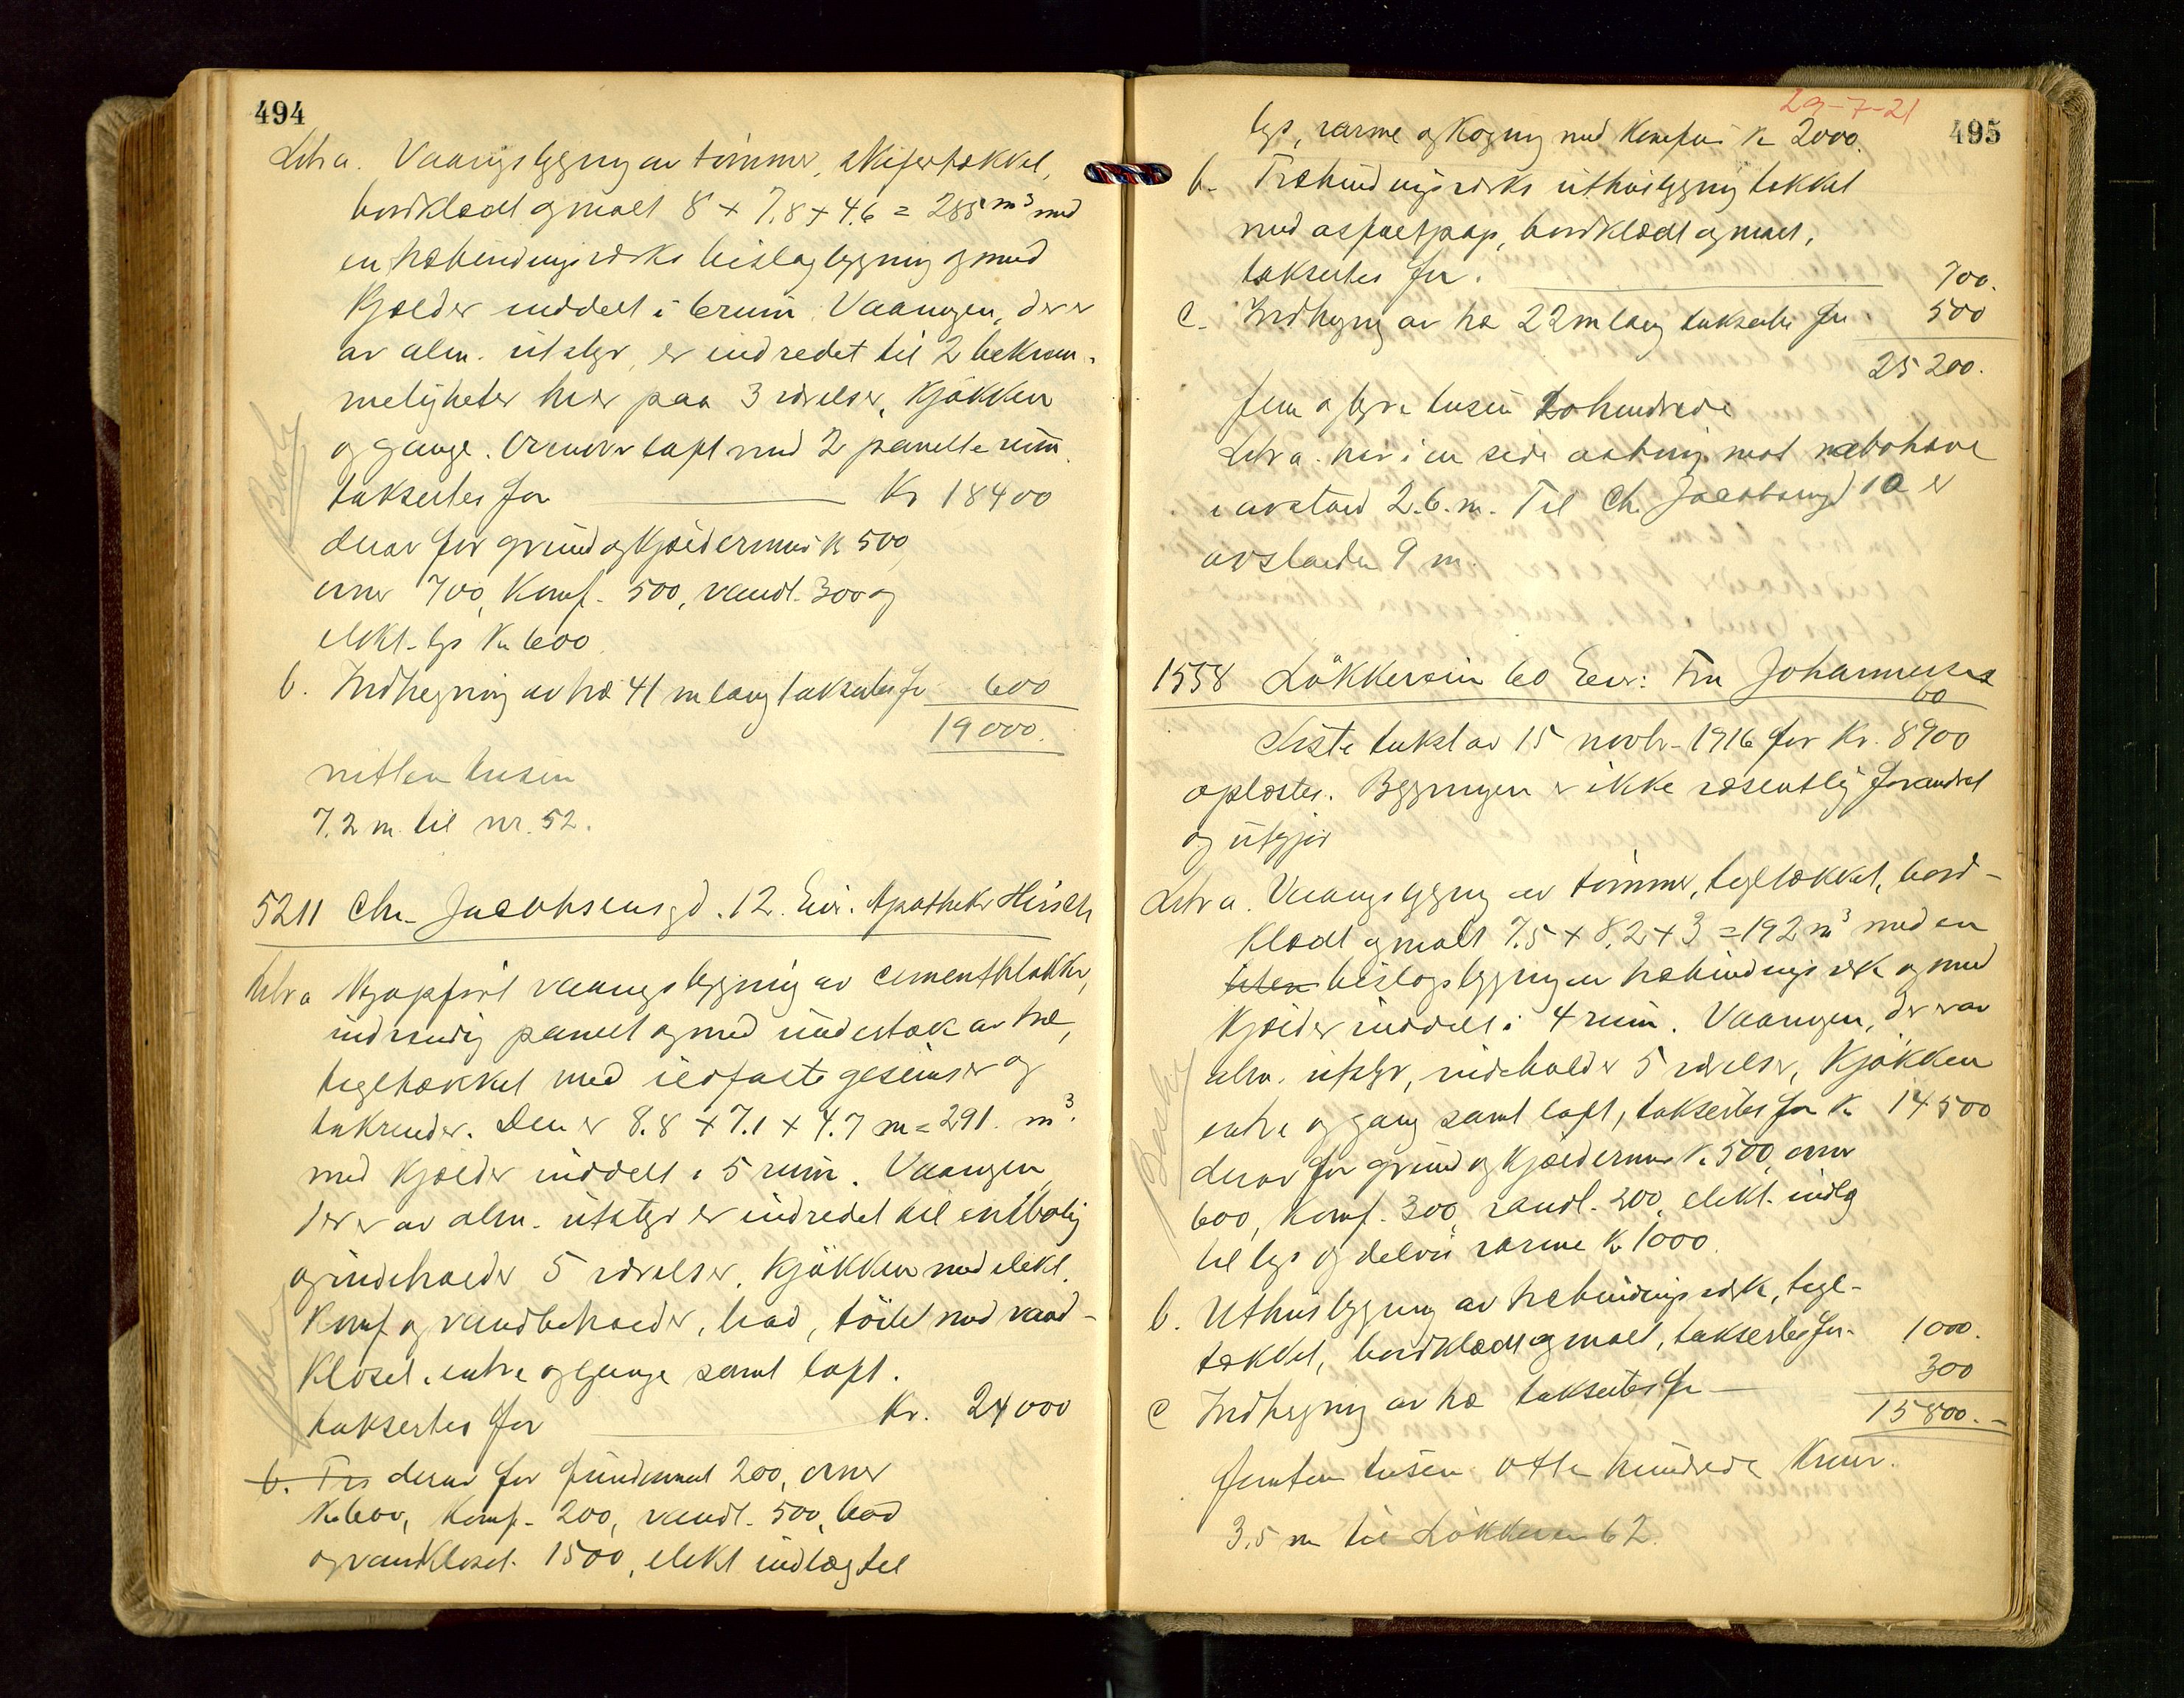 494
Litra. Vaaningsbygning av tømmer, skifertækket,
bordklædt og malt 8 x 7,8 x 4,6 = 285 m³ med
en træbindingsverks beislagbygning og med
kjælder inddelt i 6 rum. Vaaningen, der er
av alm. utstyr, er indredet til 2 bekvem-
meligheter hver paa 3 værelser, kjøkken
og gange. Ovenover loft med 2 panelte rum
taksertes for Kr 18400
derav for grund og kjældermur kr 500,
ovner 700, komf. 500, vandl. 300 og
elekt. lys kr 600.
b. Indhegning av træ 41 m lang taksertes for 600
19000.
nitten tusen
7,2 m. til nr. 52.
5211 Chr. Jacobsensgd. 12. Eier. Apotheker Hirsch
Litra Nyopført vaaningsbygning av cementblokker,
indvendig panelt og med understak av træ,
tegltækket med ildfaste gesimser og
takrender. Den er 8.8 x 7.1 x 4.7 m = 291. m³.
med kjælder inddelt i 5 rum. Vaaningen
der er av alm. utstyr er indredet til en bolig
og indeholder 5 værelser, kjøkken med elekt.
komf. og vandbeholder, bad, toilet med vand-
kloset, entre og gange samt loft.
taksertes for Kr. 24000
b. Træ derav for fundament 200, ovner
kr 600, komf. 200, vandl. 500, bad
og vandkloset. 1500, elekt indlæg til
29-7-21
495
lys, varme og kogning med komfur kr 2000.
b. Træbindingsverks uthusbygning tækket
med asfaltpap, bordklædt og malt,
taksertes for. 700.
c. Indhegning av træ 22 m lang taksertes for 500
25200.
fem og tyve tusen tohundrede
Litra. har i en side aabning mot nabohave
i avstand 2.6. m. Til Chr. Jacobsensgd 10 er
avstanden 9 m.
1558 Løkkeveien 60 Eier: Fru Johannesen
60
Siste takst av 15 novbr. 1916 for Kr. 8900
oplæstes. Bygningen er ikke væsentlig forandret
og utgjør
Litra. Vaaningsbygning av tømmer, tegltækket, bord-
klædt og malt 7.5 x 8.2 x 3 = 192 m³ med en
liten beislagsbygning av træbindingsverk og med
kjælder inddelt i 4 rum. Vaaningen, der er av
alm. utstyr, indeholder 5 værelser, kjøkken
entre og gang samt loft, taksertes for kr. 14500
derav for grund og kjældermur kr. 500, ovner
600, komf. 300, vandl. 200, elekt. indlæg
til lys og delvis varme kr 1000.
b. Uthusbygning av træbindingsverk, tegl-
tækket, bordklædt og malt, taksertes for. 1000.
c Indhegning av træ taksertes for 300
15800.-
femten tusen otte hundrede kroner.
3,5 m til Løkkeveien 62.